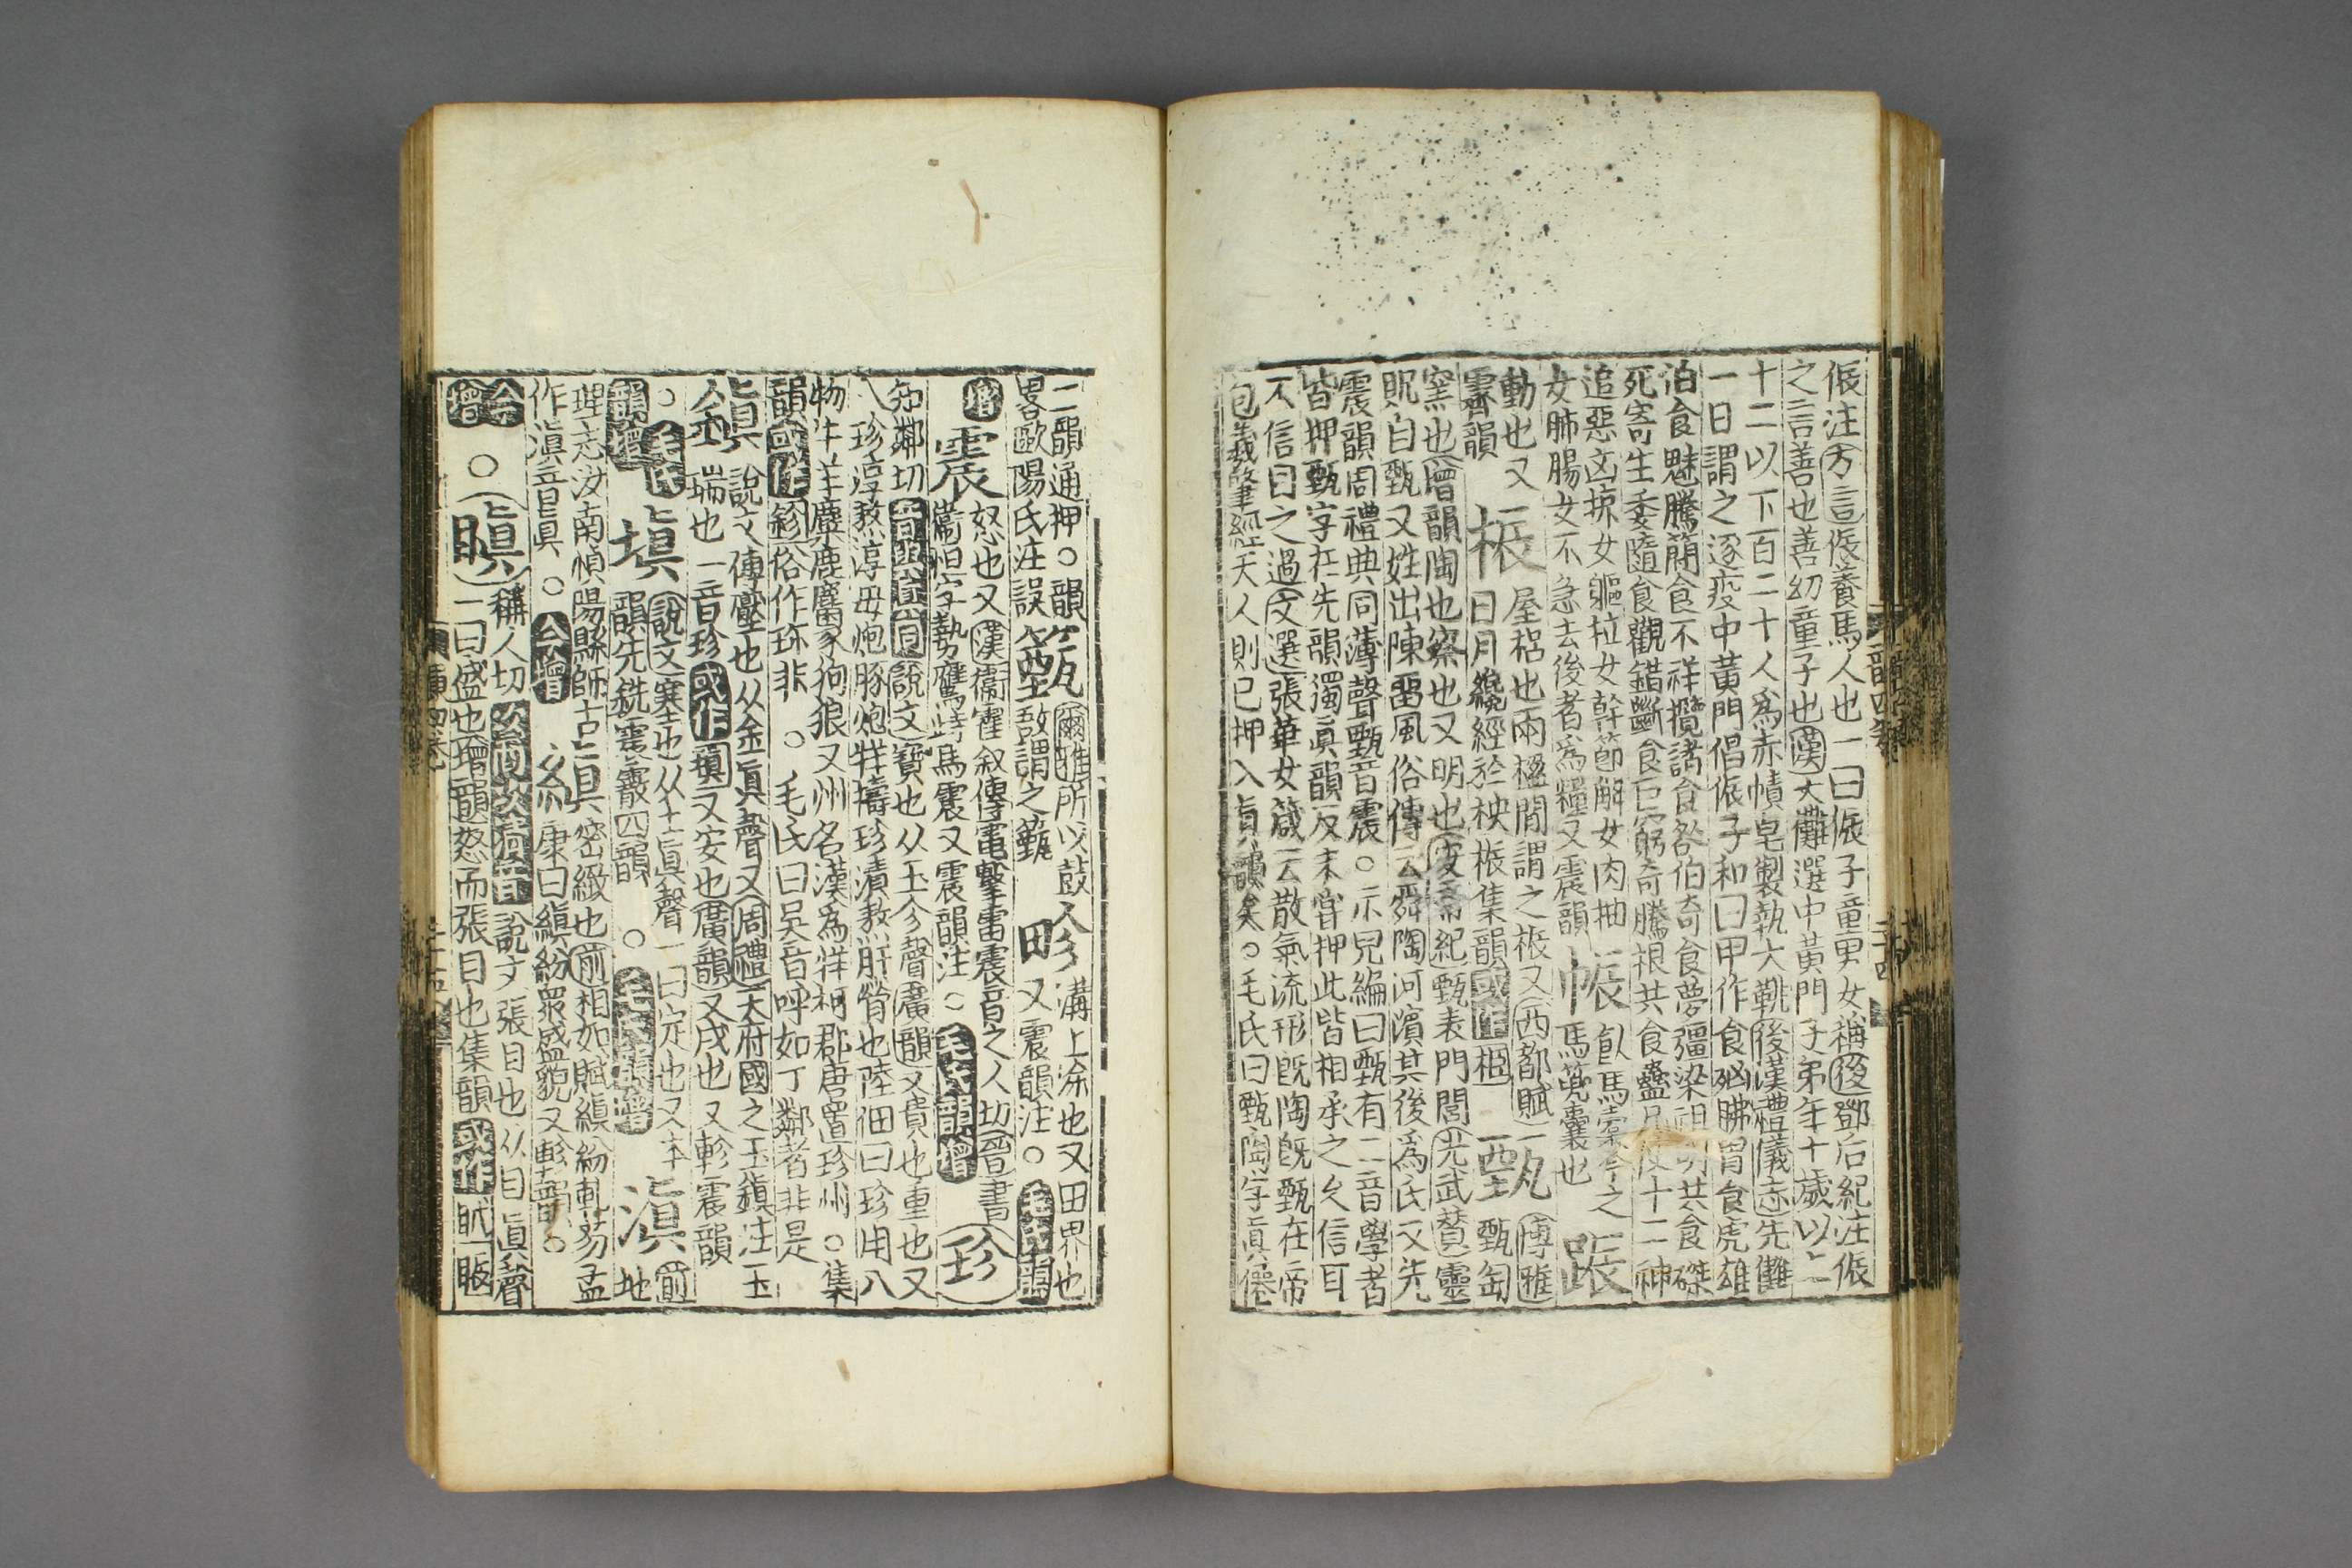 侲注方言侲養馬人也一曰侲子童男女稱後鄧后紀注侲
之言善也善幼童子也漢大儺選中黃門子弟年十歲以上
十二以下百二十人爲赤幘皂製執大鞉後漢禮儀志先儺
一日謂之逐疫中黃門倡侲子和曰甲作食㓙胇胃食虎雄
伯食魅騰簡食不祥攬諸食咎伯奇食夢彊梁祖明共食磔
死寄生委隨食觀錯斷食巨窮奇騰根共食蠱凡使十二神
追惡凶掠女軀拉女幹節解女肉抽
女肺腸女不急去後者爲糧又震韻
帪
㫁馬橐今之
馬㡓囊也
踬
動也又
霽韻
桭
屋梠也兩楹間謂之桭又西都賦
日月纔經於柍桭集韻或作㮰
甄
博雅
甄匋
窯也增韻陶也察也又明也安帝紀甄表門閭光武贊靈
貺自甄又姓出陳留風俗傳云舜陶河濱其後爲氏又先
震韻周禮典同薄聲甄音震○示兒編曰甄有二音學者
皆押甄字在先韻獨眞韻反未嘗押此皆相承之久信耳
不信目之過文選張華女箴云散氣流形旣陶旣甄在帝
包羲肇經天人則已押入眞韻矣○毛氏曰甄陶字眞僊
二韻通押○韻
畧歐陽氏注誤
籈
爾雅所以鼓
敔謂之籈
畛
溝上涂也又田界也
又震韻注○毛氏韻
增
震
怒也又漢衛霍叙傳電擊雷震音之人切晉書
衞恒字勢鷹跱馬震又震韻注○毛氏韻增
珍
知鄰切
說文寶也从玉㐱聲廣韻又貴也重也又
八珍淳熬淳毋炮豚炮牂擣珍漬熬肝膋也陸佃曰珍用八
物牛羊麋鹿麕豕狗狼又州名漢爲牂柯郡唐置珍州○集
韻或作鉁俗作珎非○毛氏曰吳音呼如丁鄰者非是
鎮
說文傅壓也从金眞聲又周禮天府國之玉鎮注玉
瑞也一音珍或作瑱又安也廣韻又戍也又軫震韻
○毛氏
韻增
塡
說文塞也从土眞聲一曰定也又本
韻先銑震霰四韻○毛氏韻增
滇
前地
理志汝南愼陽縣師古
作滇音眞○今增
縝
密緻也前相如賦縝紛軋芴孟
康曰縝紛衆盛貌又軫韻○
今
增
○
瞋
稱人切
說文張目也从目眞聲
一曰盛也增韻怒而張目也集韻或作